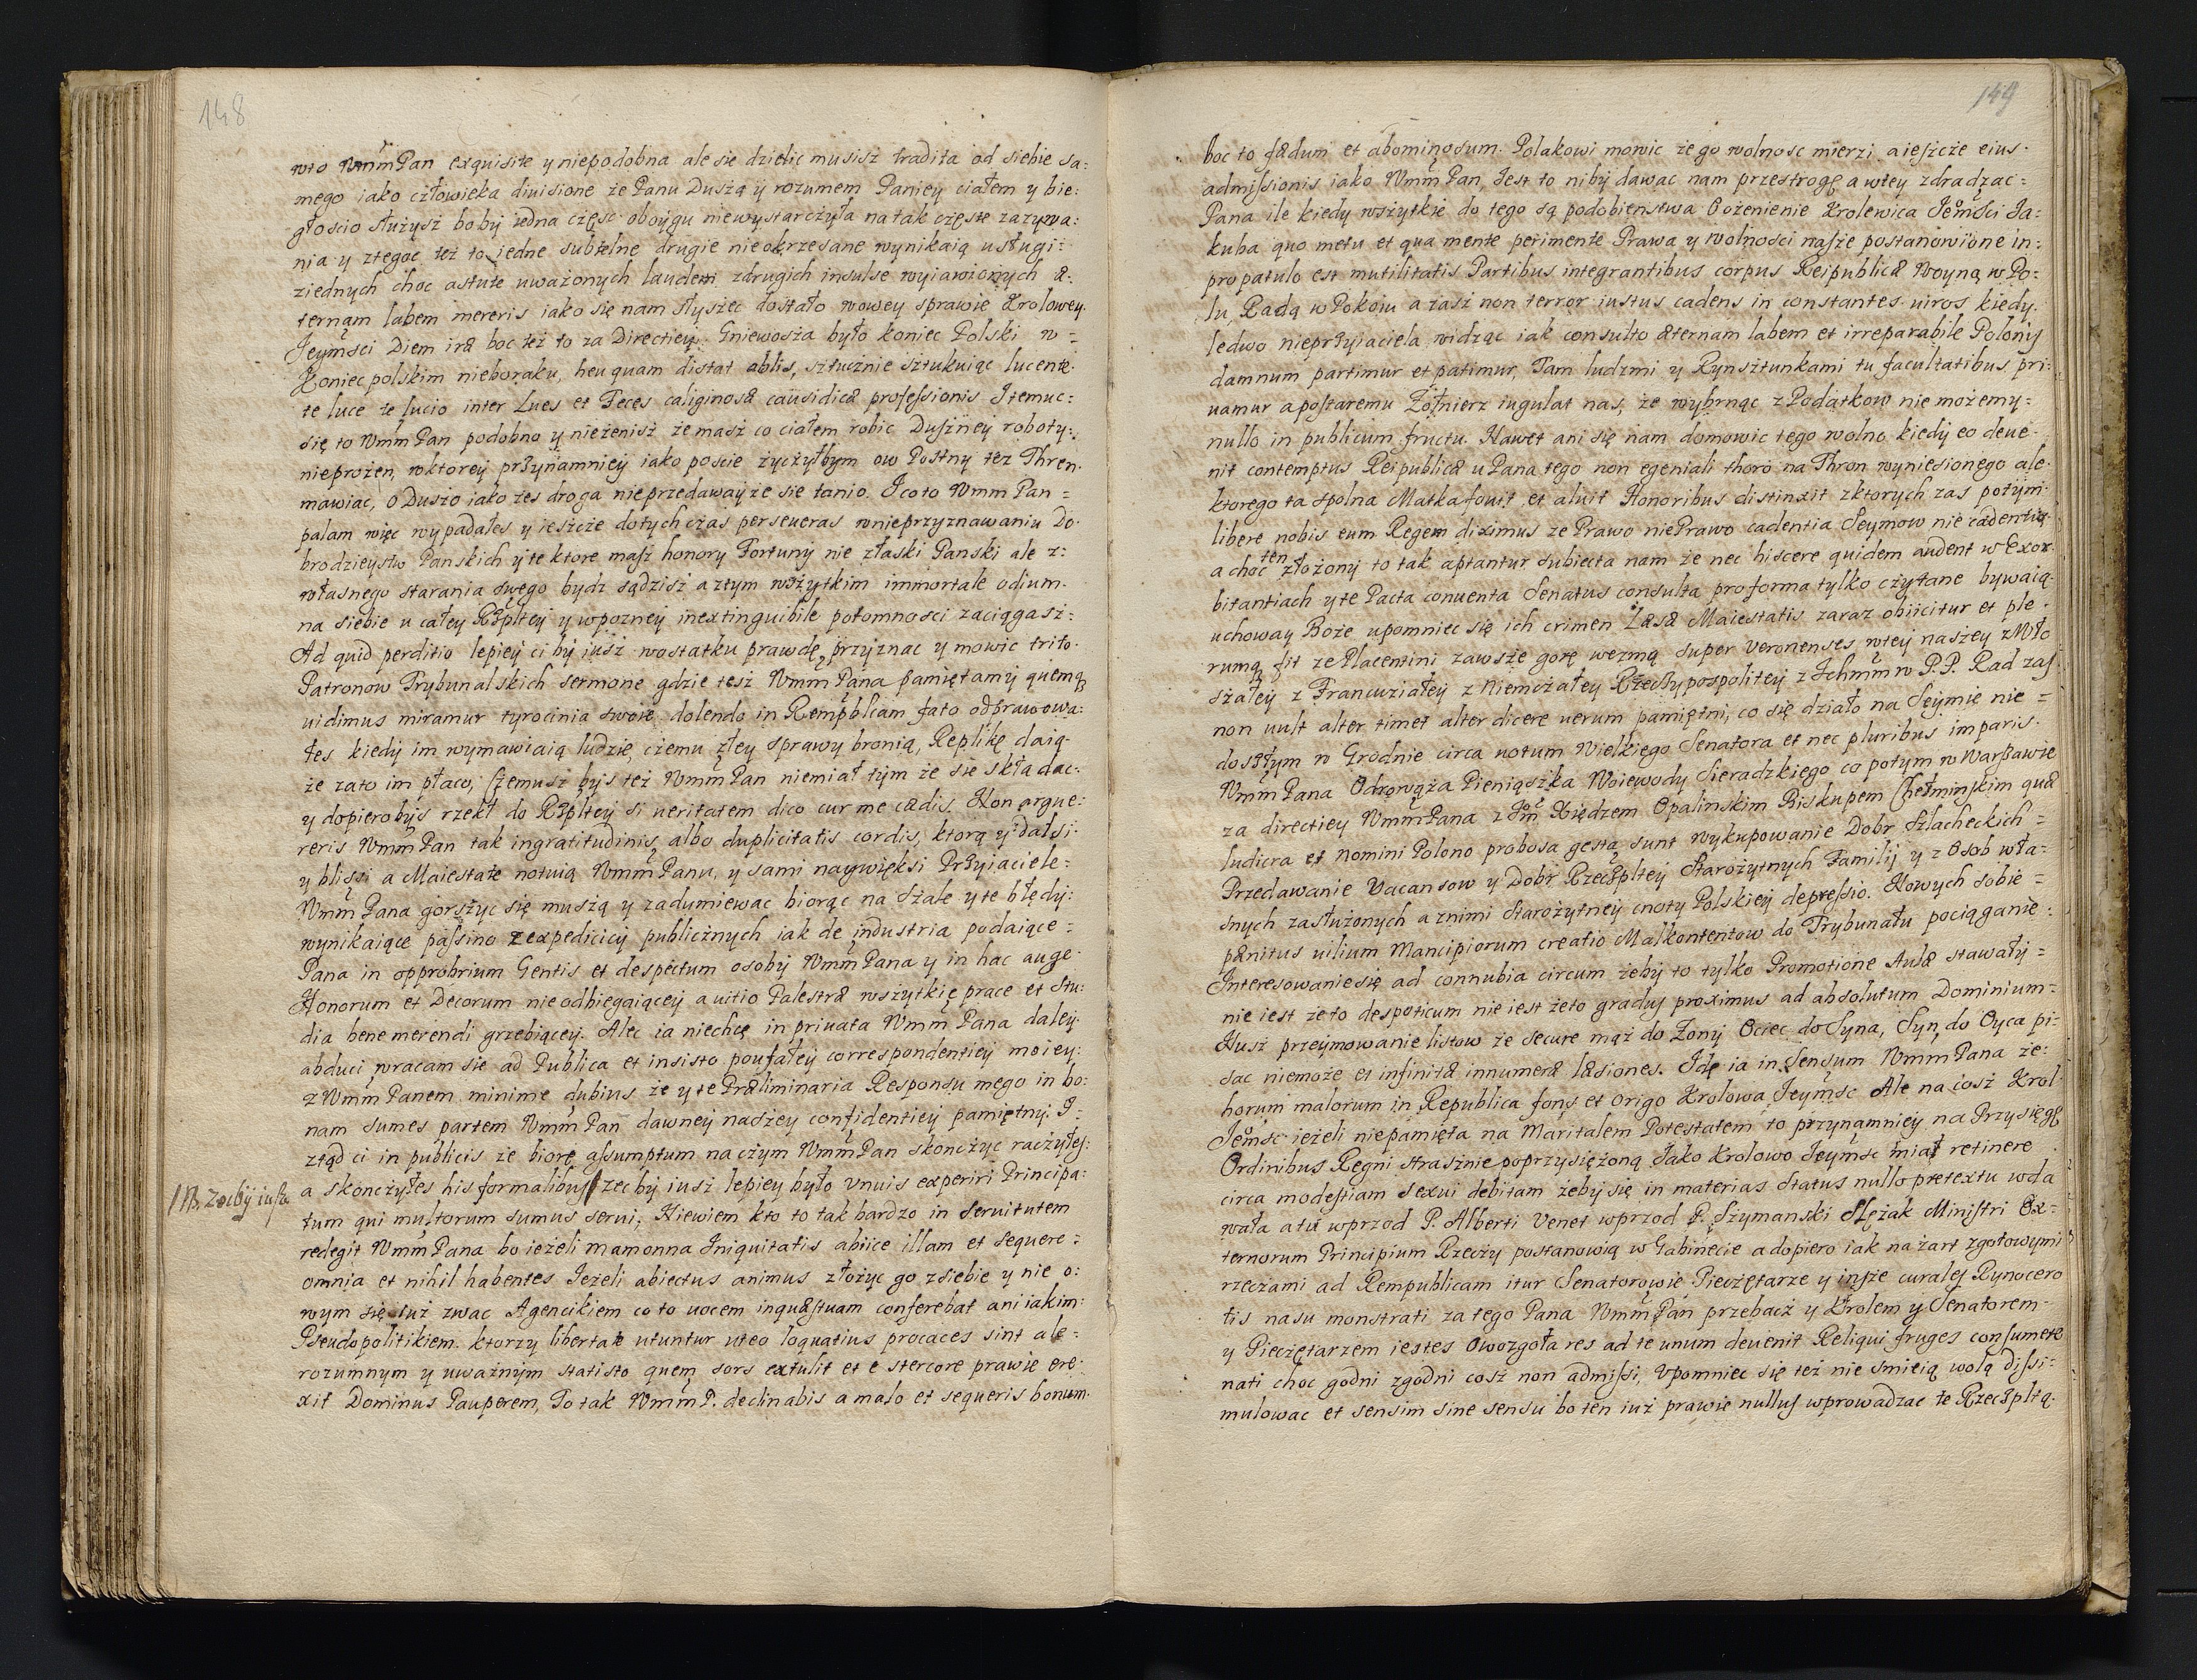 148
wto WmmPan exquisite y niepodobna ale się dzielic musisz tradita od siebie sa:
mego iako człowieka diuisione że Panu Duszą y rozumem Paniey ciałem y bie:
głoscio służysz boby iedna częsc oboygu niewystarczyła na tak częste zazywa:
nia y ztegoc też to iedne subtelne drugie nieokrzesane wynikaią usługi:
ziednych choc astute uważonych laudem zdrugich insulse wyiawionych æ:
ternam labem mereris iako się nam słyszec dostało wowey sprawie Krolowey.
Jeymsci Diem iræ boc też to za Directiey Gniewosza było koniec Polski w=
Koniecpolskim nieboraku, heu quam distat ablis, sztucznie sztukuiąc lucente.
te luce te lucio inter Lues et Feces caliginosæ causidicæ professionis Itemuc:
się to WmmPan podobno y nieżenisz że masz co ciałem robic Duszney roboty:
nieprożen, wktorey przynamniey iako poscie życzyłbym ow Postny tez Thren.
mawiac, o Duszo iako żes droga nieprzedawayże sie tanio. Icoto Wmm Pan=
palam więc wypadałes y ieszcze dotychczas perseueras wnieprzyznawaniu Do.
brodzieystw Panskich y te ktore masz honory Fortuny nie złaski Panski ale z:
własnego starania swego bydz sądzisz aztym wszytkim immortale odium.
na siebie u całey Rzpltey y wpozney inextinguibile potomnosci zaciągasz:
Ad quid perditio lepiey ci by iusz wostatku prawdę przyznac y mowic trito.
Patronow Trybunalskich sermone gdzie tesz WmmPana pamiętamy quemq
uidimus miramur tyrocinia swoie dolendo in Rempblicam fato odprawowa:
łes kiedy im wymawiaią ludzie, czemu złey sprawy bronią, Replikę daią.
że zato im płaco; Czemusz bys też WmmPan niemiał tym że sie składac:
y dopierobys rzekł do Rzpltey si ueritatem dico cur me cædis. Non argue:
reris WmmPan tak ingratitudinis albo duplicitatis cordis, ktorą y dalsi:
y blissi a Maiestate notuią WmmPanu, y sami naywięksi Przyiaciele:
WmmPana gorszyc się muszą y zadumiewac biorąc na szale y te błędy:
wynikaiące passino zexpedicicy publicznych iak de industria podaiące=
Pana in opprobrium Gentis et despectum osoby WmmPana y in hac auge.
Honorum et Decorum nieodbiegaiącey a uitio Palestræ wszytkię prace et Stu:
dia bene merendi grzebiącey. Alec ia niechcę in priuata Wmm Pana daley.
abduci wracam sie ad Publica et insisto poufałey correspondentiey moiey:
z Wmm Panem minime dubius że y te Præliminaria Responsu mego in bo:
nam sumes partem WmmPan dawney naszey confidentiey pamiętny. I=
ztąd ci in publicis że biorę assumptum na czym WmmPan skonczyc raczyłes:
/NB. zecby iusz a skonczyłes his formalibus/ zecby iusz lepiey było vnuis experiri Principa:
tum qui multorum sumus serui, Niewiem kto to tak bardzo in seruitutem
redegit WmmPana bo ieżeli mamonna Iniquitatis abiice illam et sequere=
omnia et nihil habentes Ieżeli abiectus animus złożyc go zsiebie y nie o:
wym się iuż zwac Agencikiem co to uocem inquæstuam conferebat ani iakim:
Pseudopolitikiem. ktorzy libertate utuntur uteo loquatius procaces sint ale=
rozumnym y uważnym statisto quem sors extulit et e stercore prawie ere:
xit Dominus Pauperem, To tak WmmP. declinabis a malo et sequeris bonum.
149
boc to fædum et abominosum. Polakowi mowic że go wolnosc mierzi aieszcze eius.
admissionis iako WmmPan, Jest to niby dawac nam przestrogę a wtey zdradzac=
Pana ile kiedy wszytkie do tego są podobienstwa Ożenienie Krolewica Jemsci Ja:
kuba quo metu et qua mente perimente Prawa y wolnosci nasze postanowione in:
propatulo est mutilitatis Partibus integrantibus corpus Reipublicæ Woyną w Po:
lu, Radą w Pokoiu azasz non terror iustus cadens in constantes uiros kiedy.
ledwo nieprzyiaciela widząc iak consulto æternam labem et irreparabile Polony
damnum partimur et patimur, Tam ludzmi y Rynsztunkami tu facultatibus pri:
uamur apostaremu Żołnierz iugulat nas, że wybrnąc z Podatkow nie możemy=
nullo in publicum fructu. Nawet ani się nam domowic tego wolno kiedy eo deue.
nit contemptus Reipublicæ u Pana tego non egeniali thoro na Thron wyniesionego ale.
ktorego ta spolna Matka fouit et aluit Honoribus distinxit zktorych zas potym.
libere nobis eum Regem diximus ze Prawo niePrawo cadentia Seymow nie cadentia
a choc ten złożony to tak aptantur subiecta nam że nec hiscere quidem audent w Exor.
bitantiach y te Pacta conuenta Senatus consulta pro forma tylko czytane bywaią.
uchoway Boże upomniec się ich crimen Læsæ Maiestatis zaraz obiicitur et ple.
rumq fit ze Placentini zawsze gorę wezmą super veronenses wtey naszey zWło
szałey z Francuziałey z Niemczałey Rzeczypospolitey z Ichmm w P.P. Rad zas
non uult alter timet alter dicere uerum pamiętni, co się działo na Seymie nie=
doszłym w Grodnie circa uotum Wielkiego Senatora et nec pluribus imparis.
WmmPana Odrowąża Pieniąszka Woiewody Sieradzkiego co potym w Warszawie
za directiey WmmPana z Jm Xiędzem Opalinskim Biskupem Chełminskim quæ
ludicra et Nomini Polono probosa gesta sunt wykupowanie Dobr Szlacheckich=
Przedawanie Vacansow y Dobr Rzeczpltey Starożytnych Familij y z Osob wła=
snych zasłużonych a znimi Starożytney cnoty Polskiey depressio. Nowych sobie=
pænitus uilium Mancipiorum creatio Malkontentow do Trybunału pociąganie:
Interesowanie się ad connubia circum żeby to tylko Promotione Aulæ stawały=
nie iest żeto despoticum nie iest żeto gradus proximus ad absolutum Dominium=
Nusz przeymowanie listow że secure mąż do Zony Ociec do Syna, Syn do Oyca pi:
sac niemoże et infinitæ innumeræ læsiones. Idę ia in Sensum WmmPana że:
horum malorum in Republica fons et origo Krolowa Jeymsc Ale na cosz Krol
Jemsc ieżeli niepamięta na Maritalem Potestatem to przynamniey na Przysięgę
Ordinibus Regni strasznie poprzysiężoną Jako Krolowo Jeymsc miał retinere
circa modestiam sexui debitam żeby się in materias Status nullo pretextu wda
wała a tu wprzod P. Alberti Venet wprzod P. Szymanski Slężak Ministri Ex=
ternorum Principium Rzeczy postanowią w Gabinecie a dopiero iak na żart zgotowymi
rzeczami ad Rempublicam itur Senatorowie Pieczętarze y insze curales Rynocero
tis nasu monstrati za tego Pana WmmPan przebacz y Krolem y Senatorem=
y Pieczętarzem iestes Owozgoła res ad te unum deuenit Reliqui fruges consumere
nati choc godni zgodni cosz non admissi, Vpomniec się też nie smieią wolą dissi=
mulowac et sensim sine sensu bo ten iuż prawie nullus wprowadzac te Rzeczpltą.